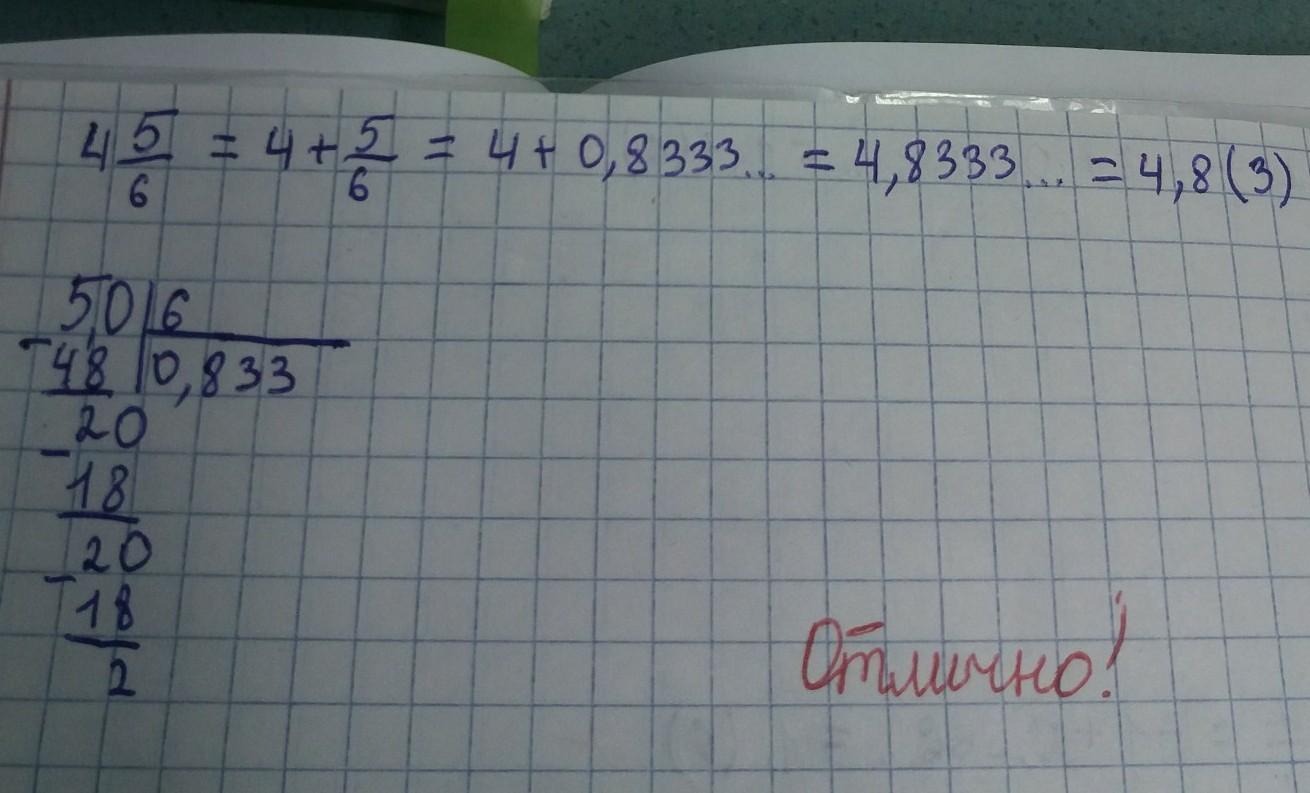 4 5/6 = 4 + 5/6 = 4 + 0,8333... = 4,8333... = 4,8(3)
5,0 | 6
- 48 | 0,833
20
- 18
20
- 18
2
Отлично!